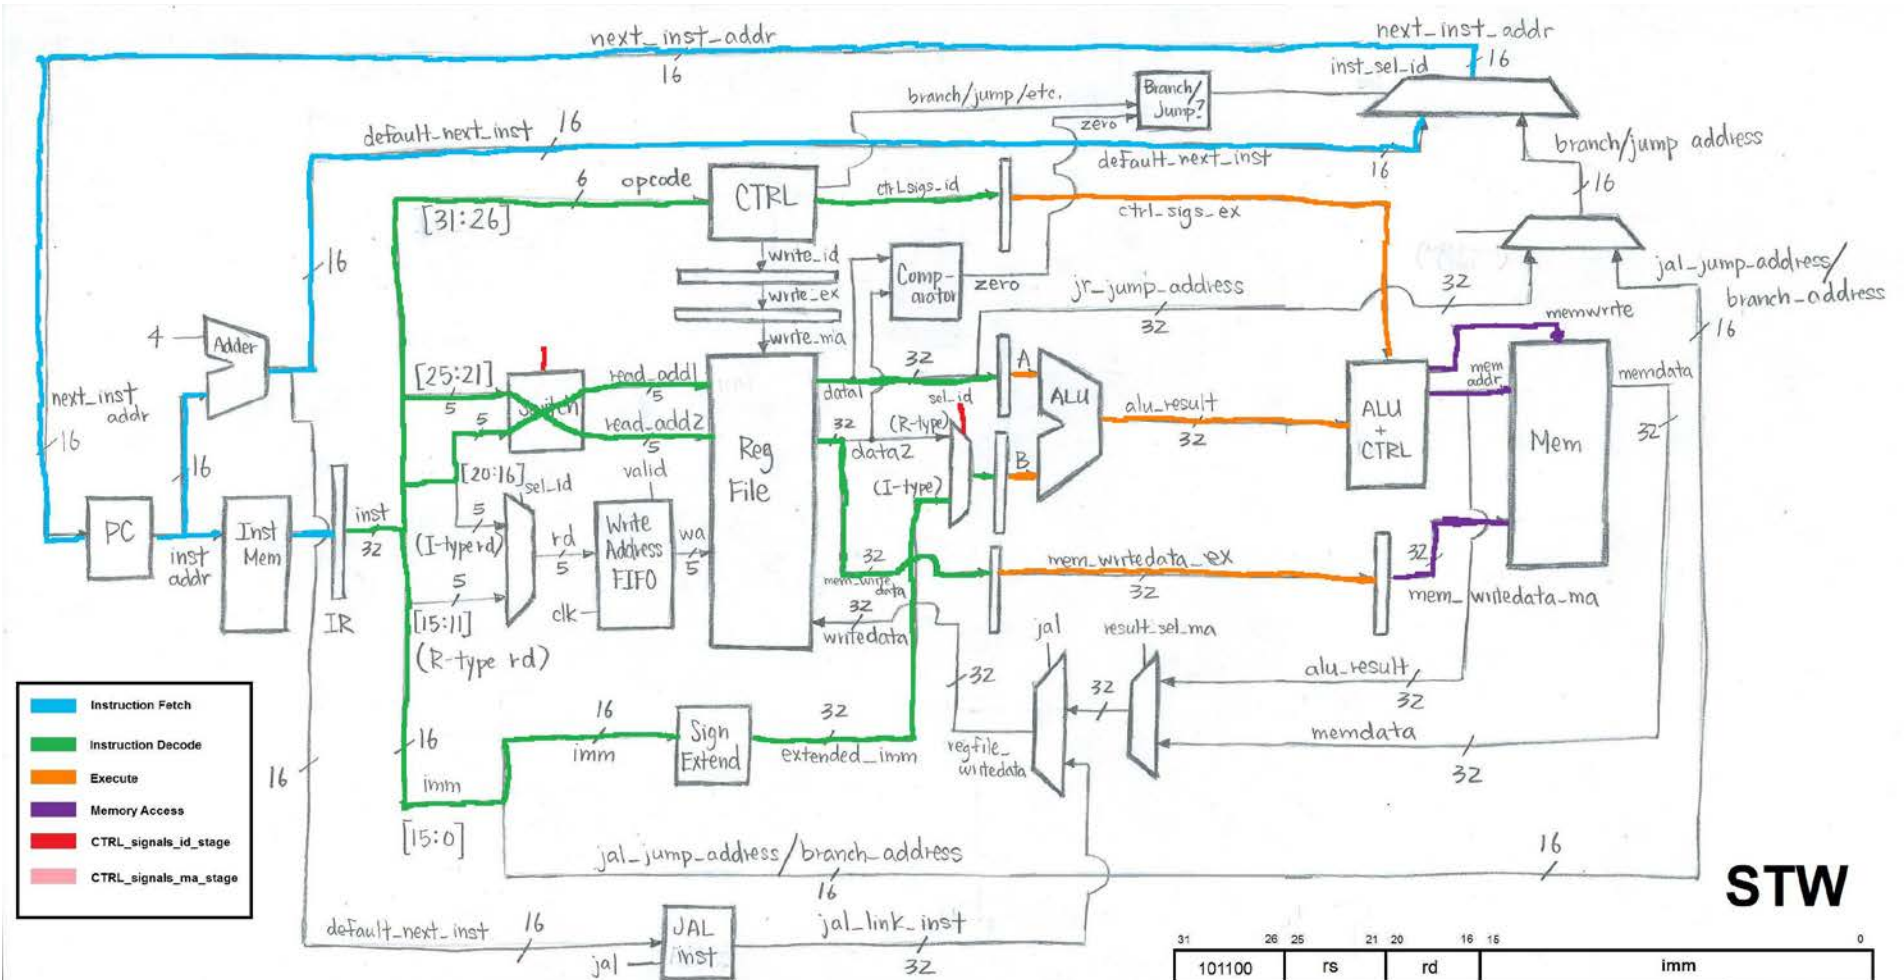 next_inst_addr
16
next_inst_addr
16
inst_sel_id
branch/jump/etc.
Branch/
Jump?
zero
default_next_inst
16
default_next_inst
16
branch/jump address
16
6
opcode
[31:26]
CTRL
ctrlsigs_id
ctrl_sigs_ex
write_id
write_ex
write_ma
Comp-
arator
zero
jr_jump_address
32
32
jal_jump_address/
branch_address
16
16
4
Adder
next_inst
addr
16
16
[25:21]
5
5
Switch
read_add1
5
read_add2
5
[20:16]
sel_id
valid
32
data1
sel_id
32
data2
(R-type)
(I-type)
A
B
ALU
alu_result
32
ALU
+
CTRL
memwrite
mem
addr
Mem
memdata
32
PC
inst
addr
Inst
Mem
IR
inst
32
5
(I-type rd)
5
[15:11]
(R-type rd)
rd
5
Write
Address
FIFO
clk
wa
5
Reg
File
32
mem_write
data
32
writedata
mem_writedata_ex
32
32
mem_writedata_ma
jal
result_sel_ma
32
32
alu_result
32
memdata
32
regfile_
writedata
16
imm
[15:0]
16
imm
Sign
Extend
32
extended_imm
16
jal_jump_address/branch_address
16
16
default_next_inst
16
jal
JAL
inst
jal_link_inst
32
Instruction Fetch
Instruction Decode
Execute
Memory Access
CTRL_signals_id_stage
CTRL_signals_ma_stage
STW
31 26 25 21 20 16 15 0
101100 rs rd imm